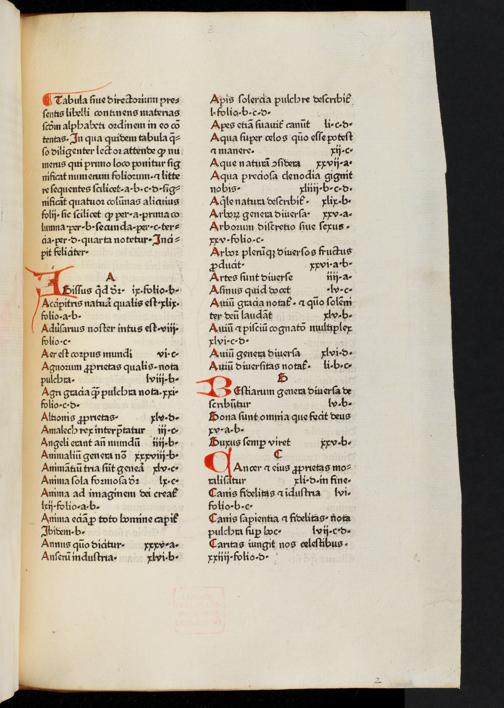 Tabula siue directorium pre⸗
sentis libelli continens materias
scďm alphabeti ordinem in eo cō
tentas. In qua quidem tabula q̄⸗
so diligenter lector attende qp nu
merus qui primo loco ponitur sig
nificat numerum foliorum. ⁊ litte
re sequentes scilicet a·b·c·d·sig⸗
nificāt quatuor colūnas alicuius
folij· sic scilicet qp per·a·prima co
lumna per·b·secunda·per·c·ter⸗
cia·per·d·quarta notetur. Inci⸗
pit feliciter·
A
Abissus qd dr̄· ix·folio·b·
Accipitris naturā qualis est·xlix·
folio·a·b·
Aduersarius noster intus est·viij·
folio·c·
Aer est corpus mundi vi·c·
Agnorum ꝓprietas qualis·nota
pulchra· lviij·b·
Agri gracia pulchra nota·xxi·
folio·c·d·
Altionis ꝓprietas· xlv·d·
Amalech rex interp̄tatur iij·c·
Angeli erant añ mundū iiij·b·
Animaliū genera nō xxxviij·b·
Animantiū tria sūt genea xlv·c·
Anima sola formosa dr̄ lx·c·
Anima ad imaginem dei creat̄
lxij·folio·a·b·
Anima eciā ꝑ toto homine capit̄
Ibidem·b·
Annus quō dicitur· xxxv·a·
Anserū industria· xlvi·b·
Apis solercia pulchre describit̄
l·folio·b·c·d·
Apes etiā suauit̄ canūt li·c·d·
Aqua super celos quo esse potest
⁊ manere· xij·c·
Aque naturā ɔsidera xxvij·a·
Aqua preciosa clenodia gignit
nobis· xliiij·b·c·d·
Aq̄le natura describit̄· xlix·b·
Arborꝝ genera diuersa· xxv·a·
Arborum discretio siue sexus·
xxv·folio·c·
Arborꝝ plerūq̄ʒ diuersos fructus
ꝓducit· xxvi·a·b·
Artes sunt diuerse iiij·a·
Asinus quid docet lv·c·
Auiū gracia notat̄· ⁊ quō solēni
ter deū laudāt xlv·b·
Auiū ⁊ pisciū cognatō multiplex
xlvi·c·d·
Auiū genera diuersa xlvi·d·
Auiū diuersitas notat̄· li·b·c·
B
BEstiarum genera diuersa de
scribūtur lv·b·
Bona sunt omnia que fecit deus
xv·a·b·
Buxus semp̱ viret xxv·b·
C
CAncer ⁊ eius ꝓprietas mo⸗
ralisatur xli·d·in fine·
Canis fidelitas ⁊ īdustria lvi·
folio·b·c·
Canis sapientia ⁊ fidelitas·nota
pulchra sup̱ hoc· lvij·c·d·
Caritas iungit nos celestibus·
xxiij·folio·d·
2